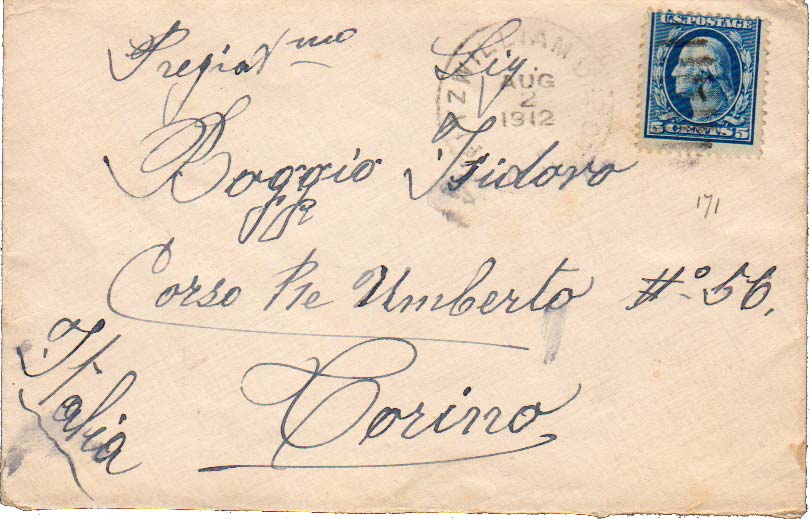 Pregiatmo Sig.
Boggio Isidoro
Corso Re Umberto #° 56.
Torino
Italia
U.S. POSTAGE
5 CENTS 5
WILLIAM
AUG
2
1912
171